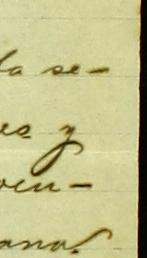 la se-
es y
ven-
ana.